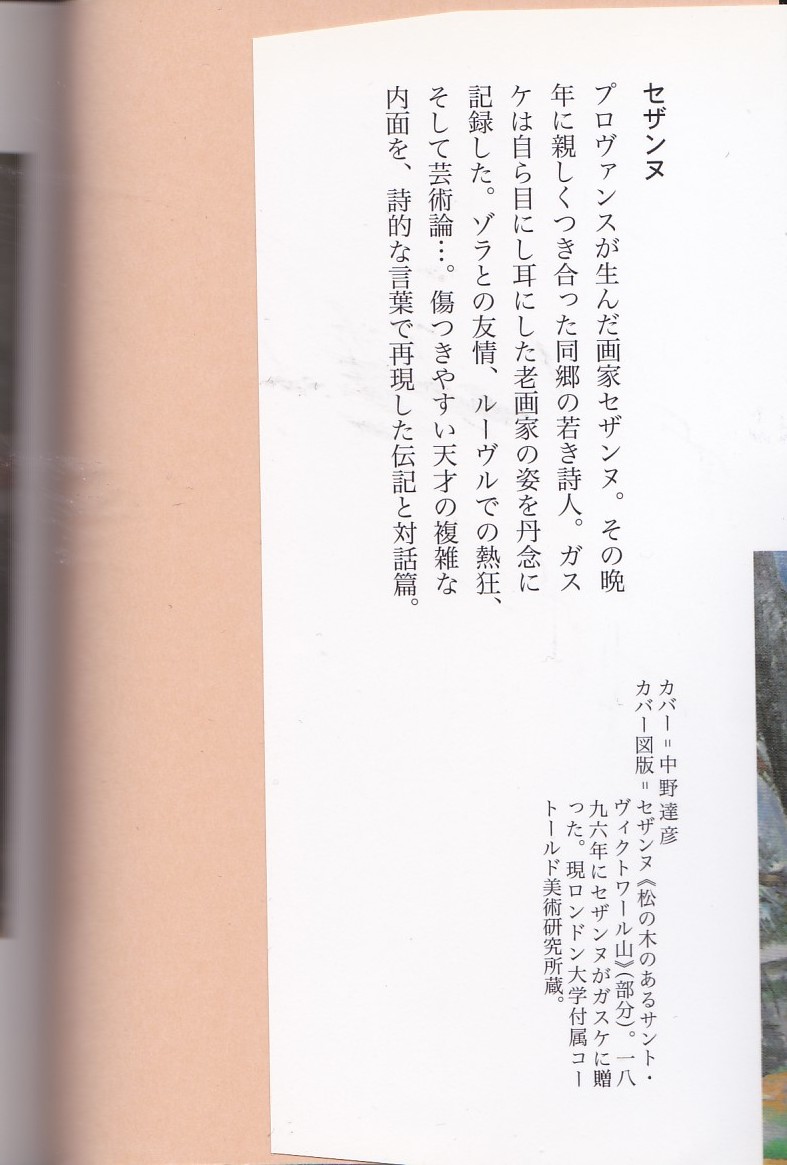 セザンヌ
プロヴァンスが生んだ画家セザンヌ。その晩
年に親しくつき合った同郷の若き詩人。ガス
ケは自ら目にし耳にした老画家の姿を丹念に
記録した。ゾラとの友情、ルーヴルでの熱狂、
そして芸術論…。傷つきやすい天才の複雑な
内面を、詩的な言葉で再現した伝記と対話篇。
カバー=中野達彦
カバー図版=セザンヌ《松の木のあるサント・
ヴィクトワール山》(部分)。一八
九六年にセザンヌがガスケに贈
った。現ロンドン大学付属コー
トールド美術研究所蔵。